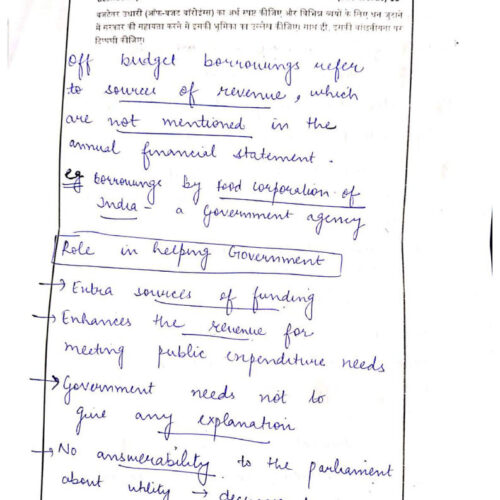 बजटेतर उधारी (ऑफ-बजट बॉरोइंग्स) का अर्थ स्पष्ट कीजिए और विभिन्न व्ययों के लिए धन जुटाने
में सरकार की सहायता करने में इसकी भूमिका का उल्लेख कीजिए। साथ ही, इसकी वांछनीयता पर
टिप्पणी कीजिए।
off budget borrowings refer
to sources of revenue, which
are not mentioned in the
annual financial statement.
eg borrowings by food corporation of
India - a Government agency
Role in helping Government
→ Extra sources of funding
→ Enhances the revenue for
meeting public expenditure needs
→ Government needs not to
give any explanation
→ No answerability to the parliament
about utility →